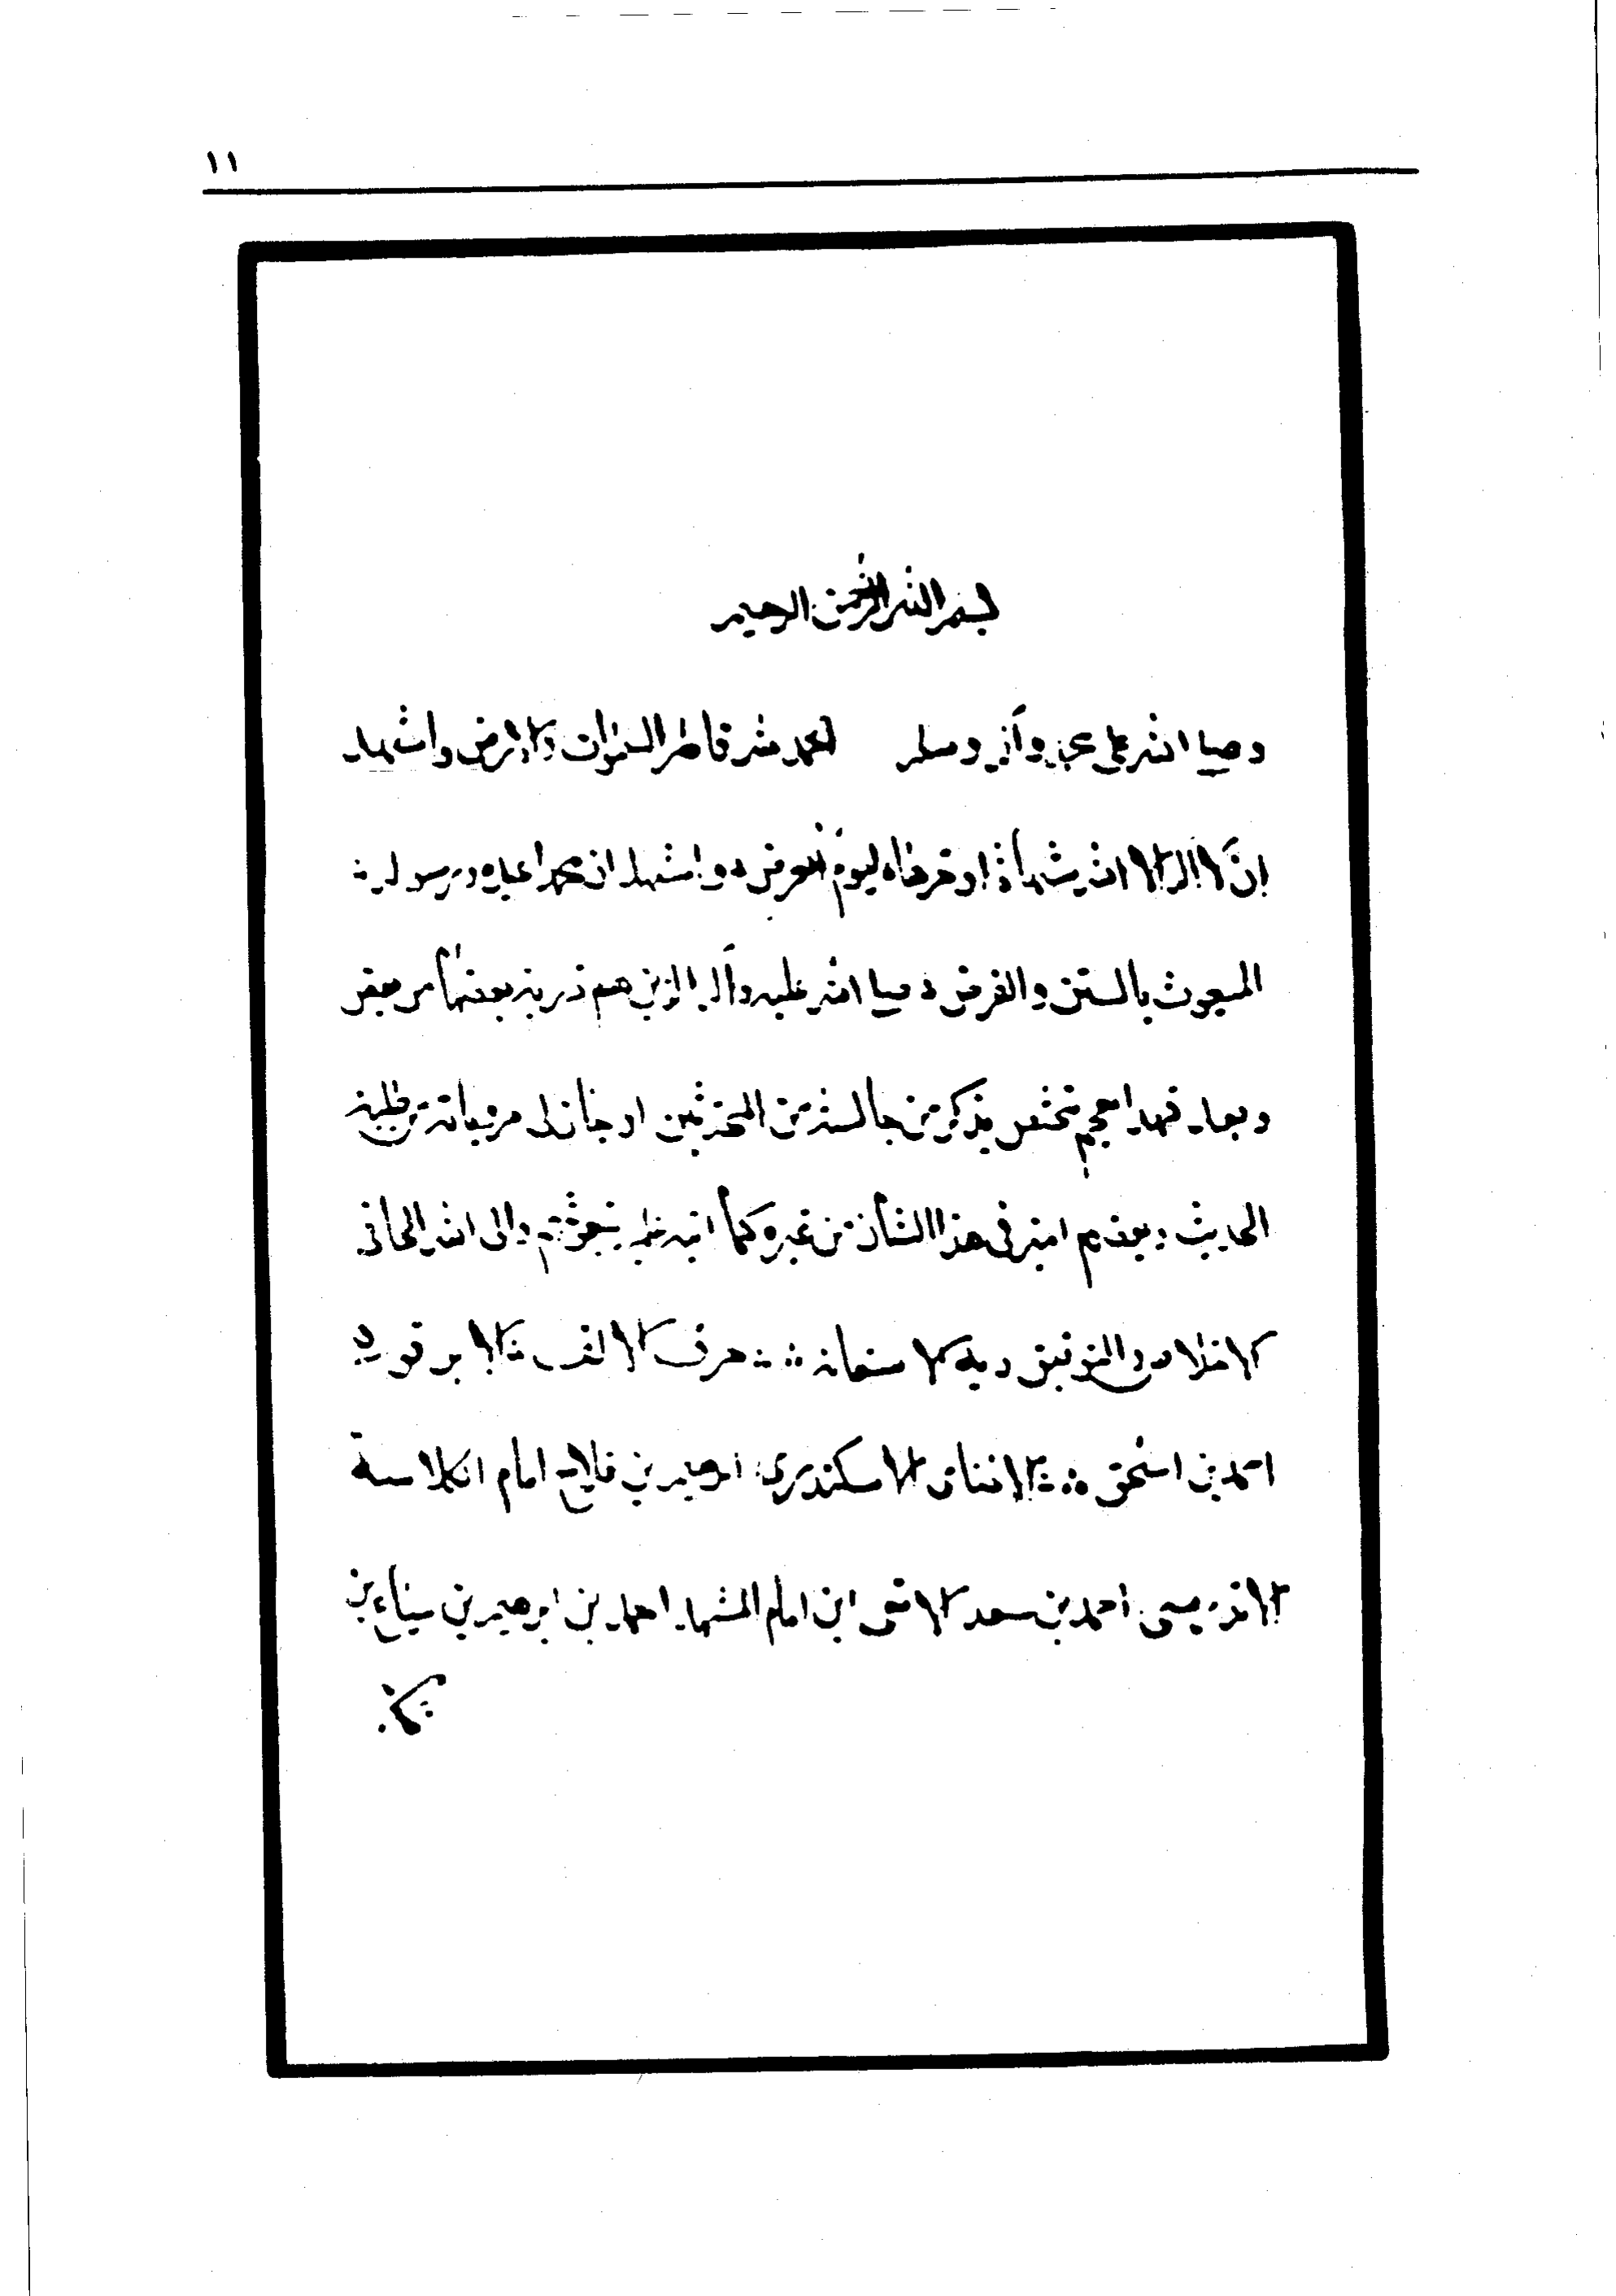 ١١
بسم الله الرحمن الرحيم
وصلى الله على محمد وآله وسلم الحمد لله فاطر السموات والارض واشهد
ان لا اله الا الله شهادة ادخرها ليوم العرض واشهد ان محمدا عبده ورسوله
المبعوث بالسنن والفرض صلى الله عليه وآله الذين هم ذرية بعضها من بعض
وبعد فهذا معجم مختصر يذكر من جالسته من المحدثين او اجاز لي مروياته من طلبة
الحديث وبعضهم اميز في هذا الشأن من غيره كما انبه عليه بنعوتهم والى الله الجأ في
الاخلاص والتوفيق وبه الاستعانة حرف الالف الابرقوهي
احمد بن اسحق الاسكندري ابرهيم بن فلاح امام الكلاسة
احمد بن سعد ابن امام المشهد احمد بن ابرهيم بن سباع بن